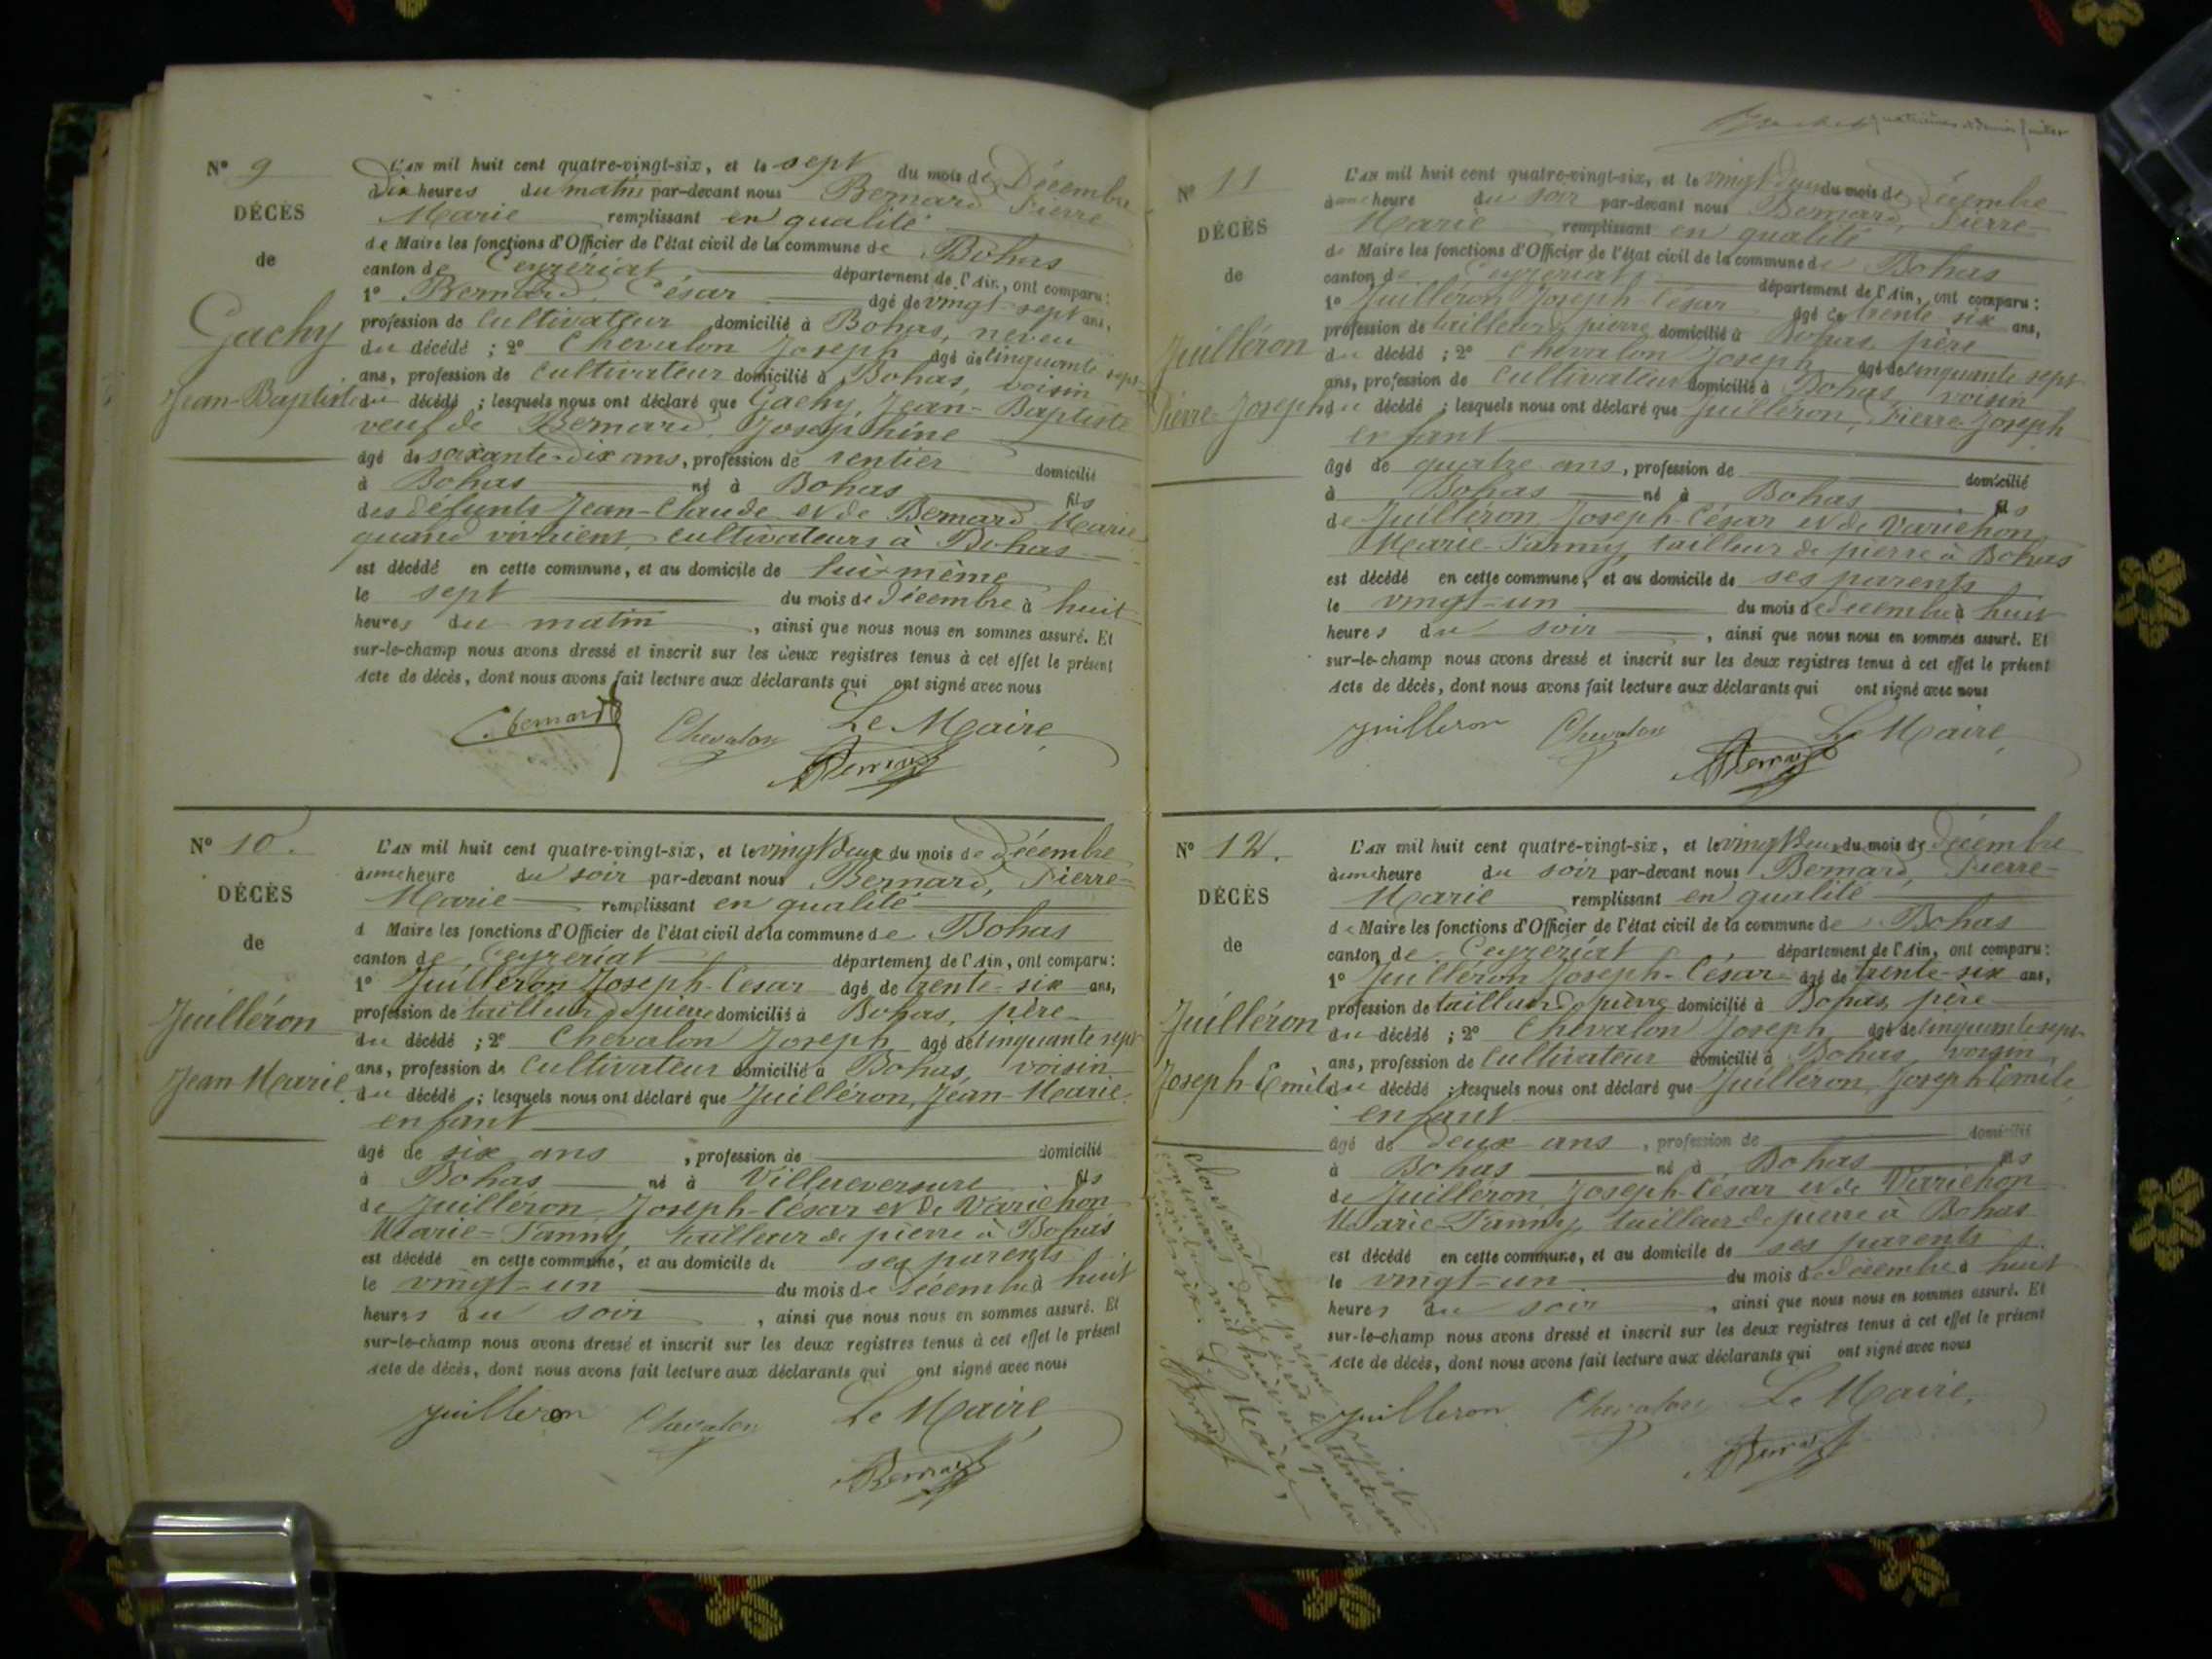 N° 9
DÉCÈS
de
Gachy
Jean-Baptiste
L'AN mil huit cent quatre-vingt-six, et le sept du mois de Décembre
à dix heures du matin par-devant nous Bernard Pierre
Marie remplissant en qualité
de Maire les fonctions d'Officier de l'état civil de la commune de Bohas
canton de Ceyzériat département de l'Ain, ont comparu:
1° Bernard César âgé de vingt-sept ans,
profession de cultivateur domicilié à Bohas, neveu
du décédé ; 2° Chevalon Joseph âgé de cinquante sept
ans, profession de cultivateur domicilié à Bohas, voisin
du décédé ; lesquels nous ont déclaré que Gachy, Jean-Baptiste
veuf de Bernard, Josephine
âgé de soixante-dix ans, profession de rentier domicilié
à Bohas né à Bohas fils
des défunts Jean-Claude et de Bernard Marie
quand vivaient cultivateurs à Bohas
est décédé en cette commune, et au domicile de lui-même
le sept du mois de Décembre à huit
heures du matin, ainsi que nous nous en sommes assuré. Et
sur-le-champ nous avons dressé et inscrit sur les deux registres tenus à cet effet le présent
Acte de décès, dont nous avons fait lecture aux déclarants qui ont signé avec nous
C. Bernard Chevalon Le Maire
Bernard
N° 10.
DÉCÈS
de
Juilléron
Jean-Marie
L'AN mil huit cent quatre-vingt-six, et le vingt deux du mois de Décembre
à une heure du soir par-devant nous Bernard, Pierre-
Marie remplissant en qualité
d Maire les fonctions d'Officier de l'état civil de la commune de Bohas
canton de Ceyzériat département de l'Ain, ont comparu:
1° Juilléron Joseph-César âgé de trente-six ans,
profession de tailleur de pierre domicilié à Bohas, père
du décédé ; 2° Chevalon Joseph âgé de cinquante sept
ans, profession de cultivateur domicilié à Bohas, voisin
du décédé ; lesquels nous ont déclaré que Juilléron, Jean-Marie
enfant
âgé de six ans, profession de domicilié
à Bohas né à Villereversure fils
de Juilléron Joseph-César et de Varichon
Marie-Fanny, tailleur de pierre à Bohas
est décédé en cette commune, et au domicile de ses parents
le vingt-un du mois de Décembre à huit
heures du soir, ainsi que nous nous en sommes assuré. Et
sur-le-champ nous avons dressé et inscrit sur les deux registres tenus à cet effet le présent
Acte de décès, dont nous avons fait lecture aux déclarants qui ont signé avec nous
Juilleron Chevalon Le Maire
Bernard
quatrième et dernier feuillet
N° 11
DÉCÈS
de
Juilléron
Pierre-Joseph
L'AN mil huit cent quatre-vingt-six, et le vingt deux du mois de Décembre
à une heure du soir par-devant nous Bernard, Pierre-
Marie remplissant en qualité
de Maire les fonctions d'Officier de l'état civil de la commune de Bohas
canton de Ceyzériat département de l'Ain, ont comparu:
1° Juilléron Joseph-César âgé de trente-six ans,
profession de tailleur de pierre domicilié à Bohas, père
du décédé ; 2° Chevalon Joseph âgé de cinquante sept
ans, profession de cultivateur domicilié à Bohas, voisin
du décédé ; lesquels nous ont déclaré que Juilléron, Pierre-Joseph
enfant
âgé de quatre ans, profession de domicilié
à Bohas né à Bohas fils
de Juilléron Joseph-César et de Varichon
Marie-Fanny, tailleur de pierre à Bohas
est décédé en cette commune, et au domicile de ses parents
le vingt-un du mois de décembre à huit
heures du soir, ainsi que nous nous en sommes assuré. Et
sur-le-champ nous avons dressé et inscrit sur les deux registres tenus à cet effet le présent
Acte de décès, dont nous avons fait lecture aux déclarants qui ont signé avec nous
Juilleron Chevalon Le Maire
Bernard
N° 12.
DÉCÈS
de
Juilléron
Joseph-Emile
L'AN mil huit cent quatre-vingt-six, et le vingt deux du mois de Décembre
à une heure du soir par-devant nous Bernard, Pierre-
Marie remplissant en qualité
de Maire les fonctions d'Officier de l'état civil de la commune de Bohas
canton de Ceyzériat département de l'Ain, ont comparu:
1° Juilléron Joseph-César âgé de trente-six ans,
profession de tailleur de pierre domicilié à Bohas, père
du décédé ; 2° Chevalon Joseph âgé de cinquante sept
ans, profession de cultivateur domicilié à Bohas, voisin
du décédé ; lesquels nous ont déclaré que Juilléron, Joseph Emile
enfant
âgé de deux ans, profession de domicilié
à Bohas né à Bohas fils
de Juilléron Joseph-César et de Varichon
Marie-Fanny, tailleur de pierre à Bohas
est décédé en cette commune, et au domicile de ses parents
le vingt-un du mois de décembre à huit
heures du soir, ainsi que nous nous en sommes assuré. Et
sur-le-champ nous avons dressé et inscrit sur les deux registres tenus à cet effet le présent
Acte de décès, dont nous avons fait lecture aux déclarants qui ont signé avec nous
Juilleron Chevalon Le Maire,
Bernard
Clos et arrêté le présent registre
contenant douze actes le trente-un
Décembre mil huit cent quatre
vingt-six. Le Maire,
Bernard